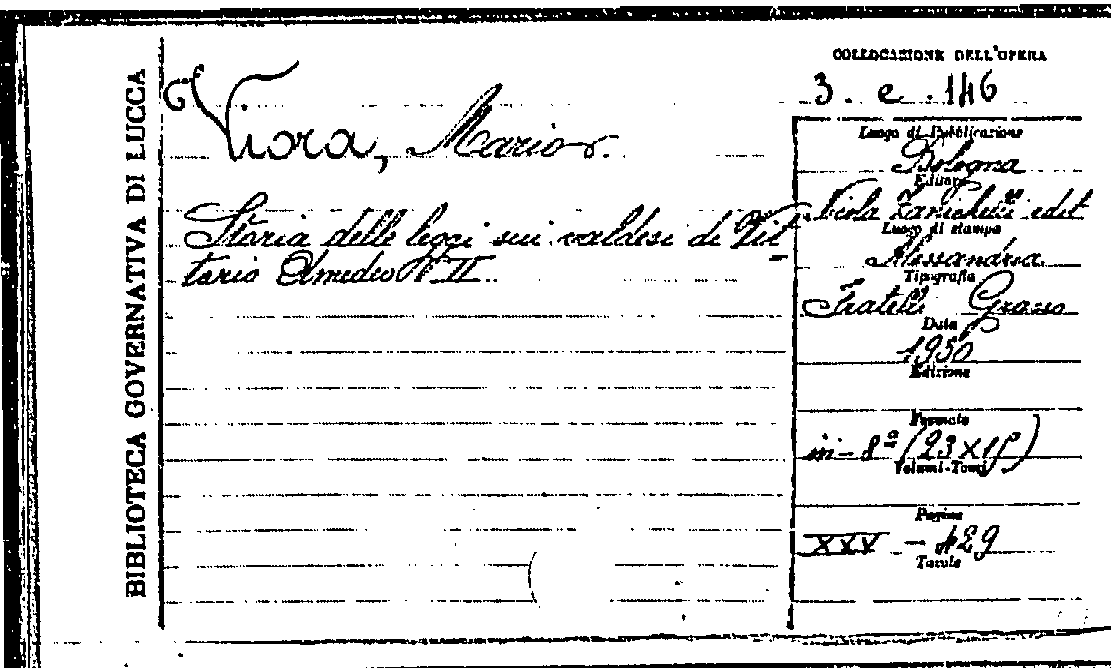 BIBLIOTECA GOVERNATIVA DI LUCCA
Viora, Mario.
Storia delle leggi sui valdesi di Vit
torio Amedeo II.
COLLOCAZIONE DELL'OPERA
3. e. 146
Luogo di Pubblicazione
Bologna
Editore
Zanichelli edit
Luogo di stampa
Alessandria
Tipografia
Fratelli Grasso
Data
1930
Edizione
Formato
in-8º (23x15)
Volumi-Tomi
Pagine
XXV - 429
Tavole